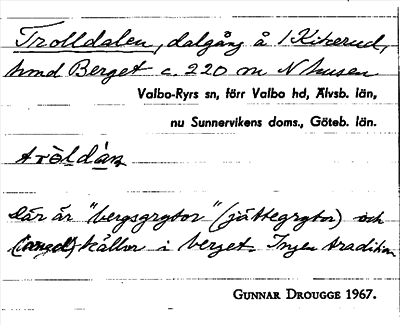 Trolldalen, dalgång å 1 Kikerud,
Berget c. 220 m N husen
Valbo-Ryrs sn, förr Valbo hd, Älvsb. län,
nu Sunnervikens doms., Göteb. län.
Där är "bergsgrytor" (jättegrytor) och
källor i berget. Ingen tradition
GUNNAR DROUGGE 1967.